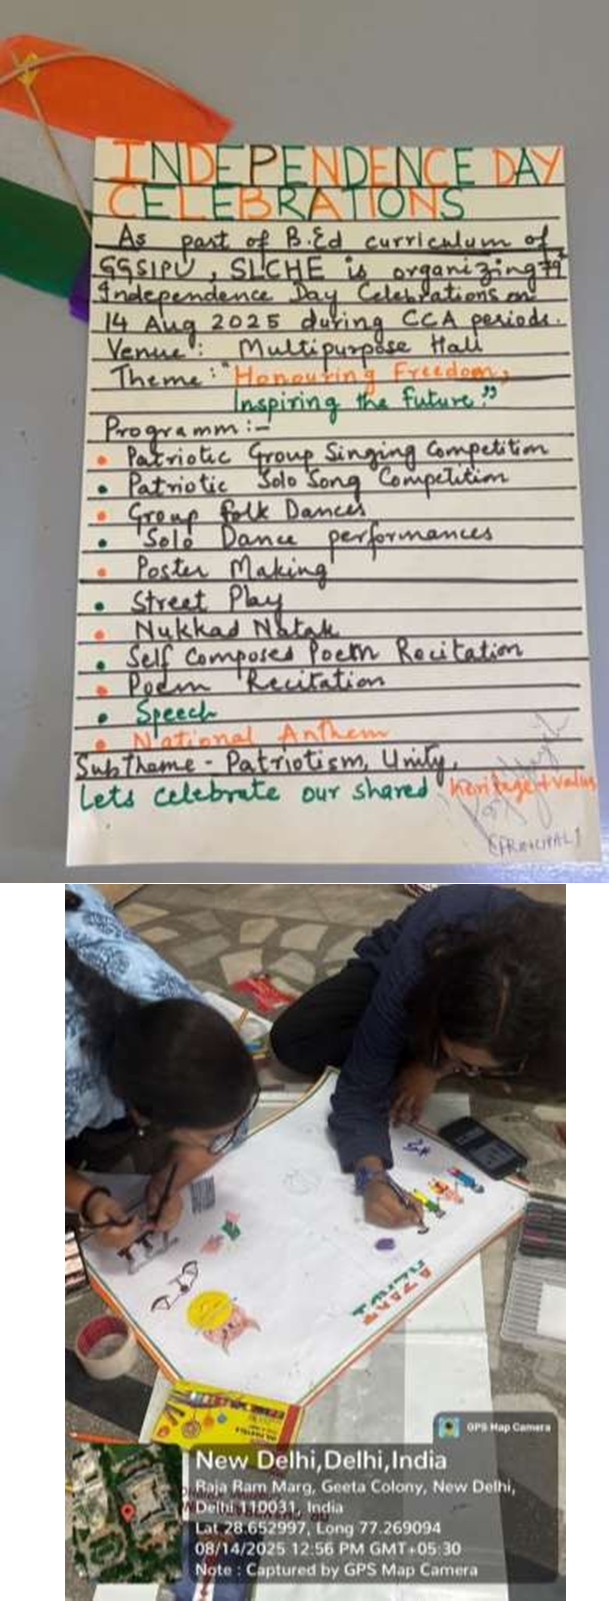 INDEPENDENCE DAY
CELEBRATIONS
As part of B.Ed curriculum of
GGSIPU, SLCHE is organizing 79
Independence Day Celebrations on
14 Aug 2025 during CCA periods.
Venue: Multipurpose Hall
Theme: "Honouring Freedom,
Inspiring the future."
Programm:-
• Patriotic Group Singing Competition
• Patriotic Solo Song Competition
• Group folk Dances
• Solo Dance performances
• Poster Making
• Street Play
• Nukkad Natak
• Self Composed Poem Recitation
• Poem Recitation
• Speech
• National Anthem
Subtheme - Patriotism, Unity,
Lets celebrate our shared heritage + value
(PRINCIPAL)
GPS Map Camera
New Delhi,Delhi,India
Raja Ram Marg, Geeta Colony, New Delhi,
Delhi 110031, India
Lat 28.652997, Long 77.269094
08/14/2025 12:56 PM GMT+05:30
Note : Captured by GPS Map Camera